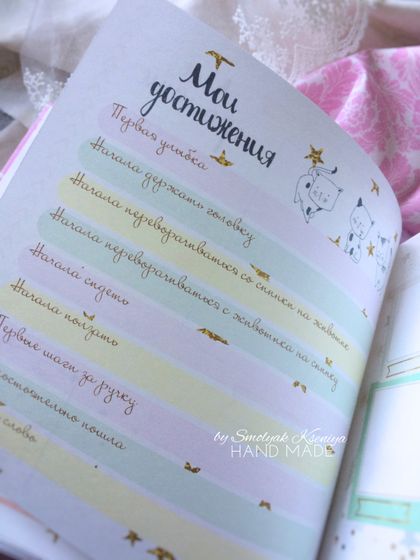 Мои
достижения
Первая улыбка
Начала держать головку
Начала переворачиваться со спинки на животик
Начала переворачиваться с животика на спинку
Начала сидеть
Начала ползать
Первые шаги за ручку
мостоятельно пошла
слово
by Smolyak Kseniya
HAND MADE